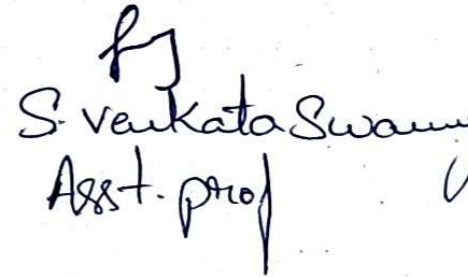 S. Venkata Swamy
Asst. prof